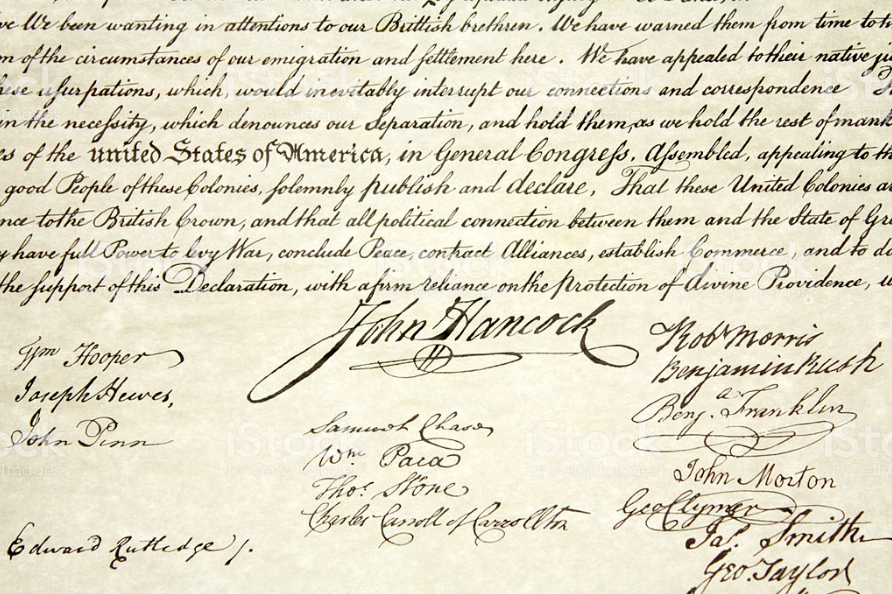 We been wanting in attentions to our Brittish brethren. We have warned them from time to
of the circumstances of our emigration and settlement here. We have appealed to their native
usurpations, which, would inevitably interrupt our connections and correspondence
in the necessity, which denounces our Separation, and hold them, as we hold the rest of
of the united States of America, in General Congress, Assembled, appealing to
good People of these Colonies, solemnly publish and declare, That these United Colonies
to the British Crown, and that all political connection between them and the State of
have full Power to levy War, conclude Peace, contract Alliances, establish Commerce, and to do
the support of this Declaration, with a firm reliance on the Protection of divine Providence,
John Hancock
Wm Hooper
Joseph Hewes,
John Penn
Edward Rutledge /.
Samuel Chase
Wm. Paca
Thos. Stone
Charles Carroll of Carrollton
Robt Morris
Benjamin Rush
Benja. Franklin
John Morton
Geo Clymer
Jas. Smith
Geo. Taylor
iStock